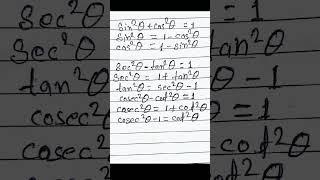 sin²θ + cos²θ = 1
sin²θ = 1 - cos²θ
cos²θ = 1 - sin²θ
sec²θ - tan²θ = 1
sec²θ = 1 + tan²θ
tan²θ = sec²θ - 1
cosec²θ - cot²θ = 1
cosec²θ = 1 + cot²θ
cosec²θ - 1 = cot²θ